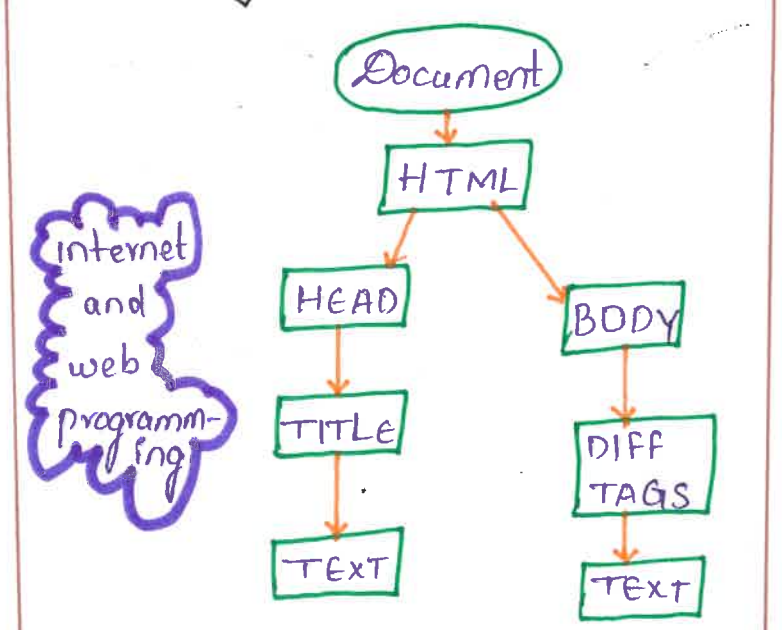 Document
HTML
internet
and
web
programm-
ing
HEAD
BODY
TITLE
DIFF
TAGS
TEXT
TEXT